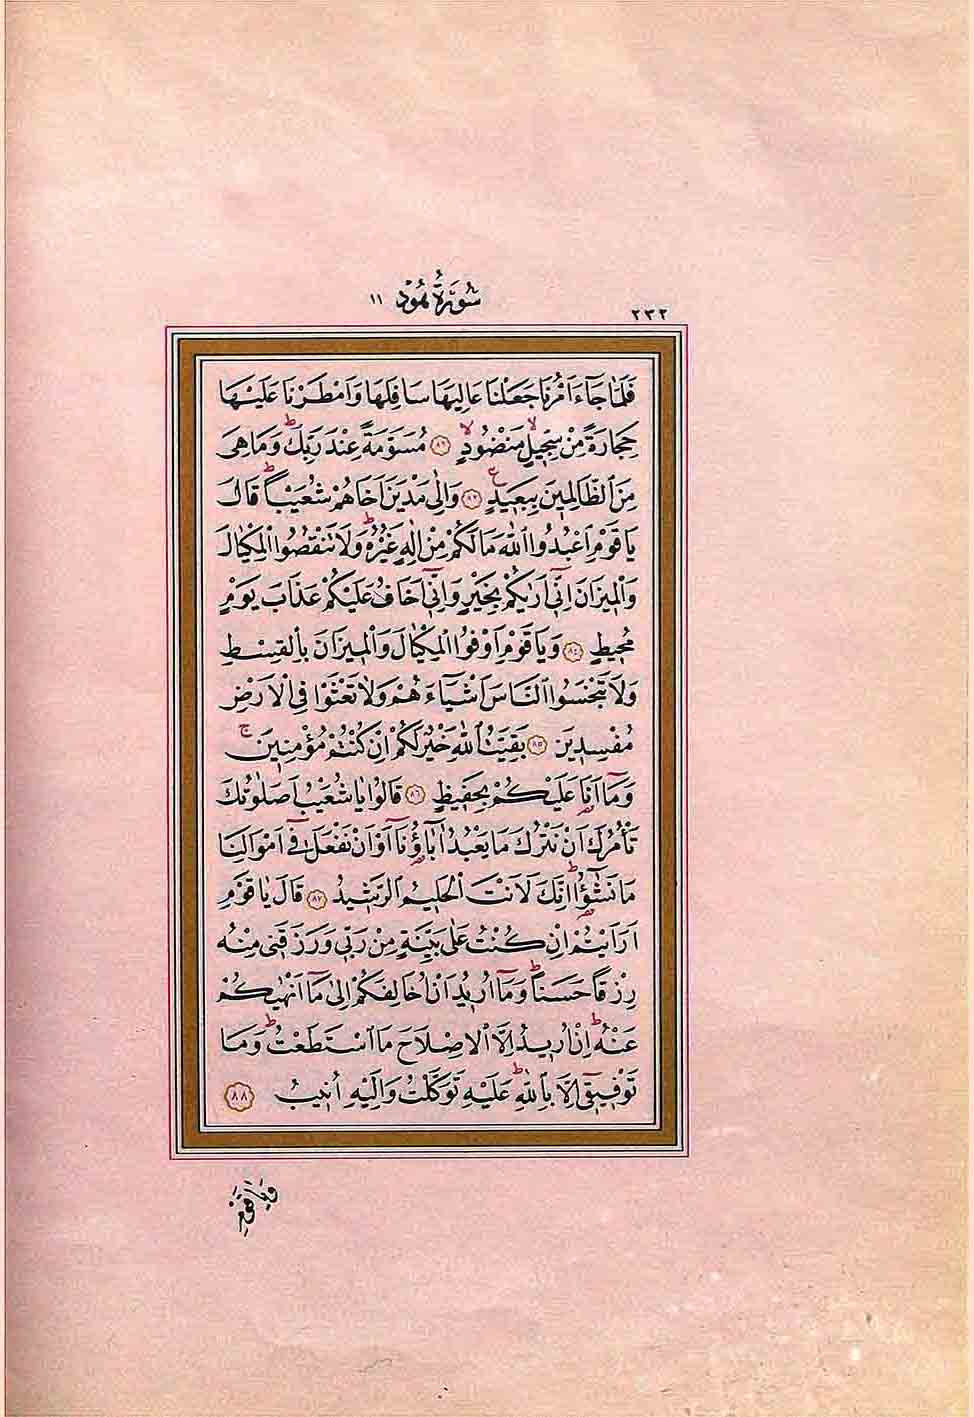 ٢٣٢
سُورَةُ هُودٍ ١١
فَلَمَّا جَٓاءَ اَمْرُنَا جَعَلْنَا عَالِيَهَا سَافِلَهَا وَاَمْطَرْنَا عَلَيْهَا
حِجَارَةً مِنْ سِجّ۪يلٍۙ مَنْضُودٍۙ ﴿٨٢﴾ مُسَوَّمَةً عِنْدَ رَبِّكَۜ وَمَا هِيَ
مِنَ الظَّالِم۪ينَ بِبَع۪يدٍ۟ ﴿٨٣﴾ وَاِلٰى مَدْيَنَ اَخَاهُمْ شُعَيْبًاۜ قَالَ
يَا قَوْمِ اعْبُدُوا اللّٰهَ مَا لَكُمْ مِنْ اِلٰهٍ غَيْرُهُۜ وَلَا تَنْقُصُوا الْمِكْيَالَ
وَالْم۪يزَانَ اِنّ۪ٓي اَرٰيكُمْ بِخَيْرٍ وَاِنّ۪ٓي اَخَافُ عَلَيْكُمْ عَذَابَ يَوْمٍ
مُح۪يطٍ ﴿٨٤﴾ وَيَا قَوْمِ اَوْفُوا الْمِكْيَالَ وَالْم۪يزَانَ بِالْقِسْطِ
وَلَا تَبْخَسُوا النَّاسَ اَشْيَٓاءَهُمْ وَلَا تَعْثَوْا فِي الْاَرْضِ
مُفْسِد۪ينَ ﴿٨٥﴾ بَقِيَّتُ اللّٰهِ خَيْرٌ لَكُمْ اِنْ كُنْتُمْ مُؤْمِن۪ينَۚ
وَمَٓا اَنَا۬ عَلَيْكُمْ بِحَف۪يظٍ ﴿٨٦﴾ قَالُوا يَا شُعَيْبُ اَصَلٰوتُكَ
تَأْمُرُكَ اَنْ نَتْرُكَ مَا يَعْبُدُ اٰبَٓاؤُ۬نَٓا اَوْ اَنْ نَفْعَلَ ف۪ٓي اَمْوَالِنَا
مَا نَشٰٓؤُ۬اۜ اِنَّكَ لَاَنْتَ الْحَل۪يمُ الرَّش۪يدُ ﴿٨٧﴾ قَالَ يَا قَوْمِ
اَرَاَيْتُمْ اِنْ كُنْتُ عَلٰى بَيِّنَةٍ مِنْ رَبّ۪ي وَرَزَقَن۪ي مِنْهُ
رِزْقًا حَسَنًاۜ وَمَٓا اُر۪يدُ اَنْ اُخَالِفَكُمْ اِلٰى مَٓا اَنْهٰيكُمْ
عَنْهُۜ اِنْ اُر۪يدُ اِلَّا الْاِصْلَاحَ مَا اسْتَطَعْتُۜ وَمَا
تَوْف۪يق۪ٓي اِلَّا بِاللّٰهِۜ عَلَيْهِ تَوَكَّلْتُ وَاِلَيْهِ اُن۪يبُ ﴿٨٨﴾
وَيَا قَوْمِ